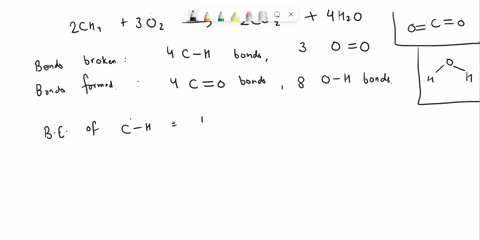 2CH₄ + 3O₂ 2CO₂ + 4H₂O
O=C=O
Bonds broken : 4 C-H bonds, 3 O=O
Bonds formed : 4 C=O bonds, 8 O-H bonds.
O
H H
B.E. of C-H =